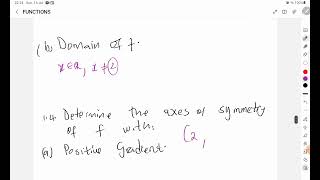 FUNCTIONS
(b) Domain of f.
x∈R, x ≠ 2
1.4 Determine the axes of symmetry
of f with:
(a) Positive Gradient. (2,